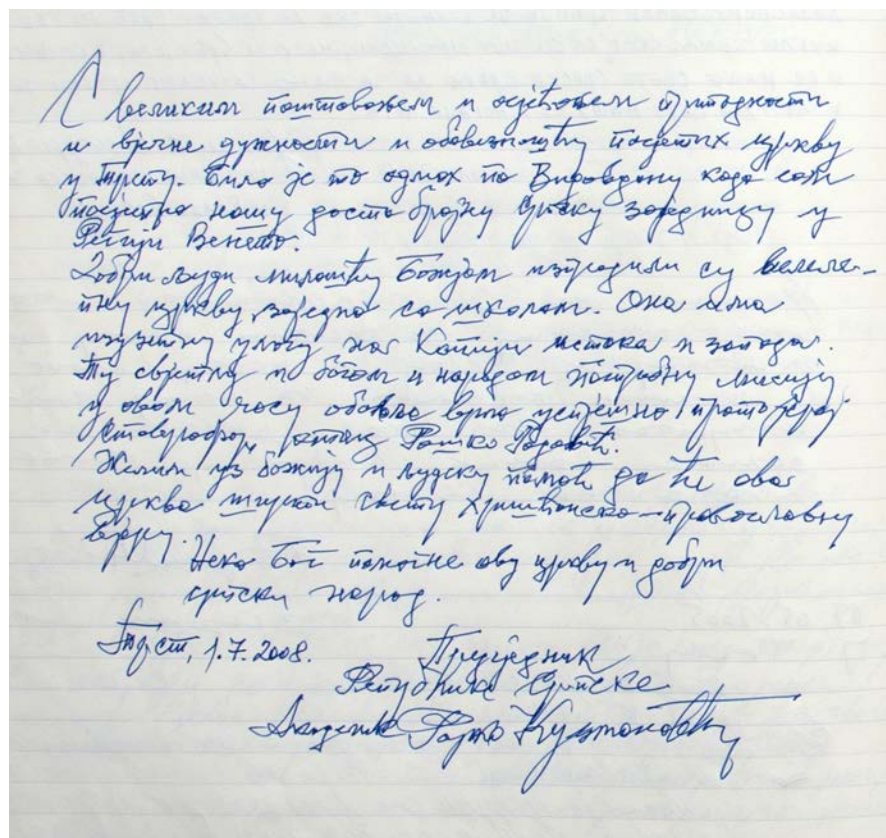 С великим поштовањем и осјећањем припадности
и вјечне дужности и обавезношћу посјетих цркву
у Трсту. Било је то одмах по Видовдану када сам
посјетио нашу доста бројну Српску заједницу у
Регији Венето.
Добри људи милошћу Божјом изградили су велеле-
пну цркву заједно са школом. Она има
изузетну улогу на Капији истока и запада.
Ту свјетлу и богом и народом потребну мисију
у овом часу обавља врло успјешно протојереј
ставрофор, отац Рашко Радовић.
Желим уз божију и људску помоћ да ће ова
црква ширити свету хришћанско-православну
вјеру.
Нека Бог помогне ову цркву и добри
српски народ.
Трст, 1.7.2008.
Предсједник
Републике Српске
Академик Рајко Кузмановић